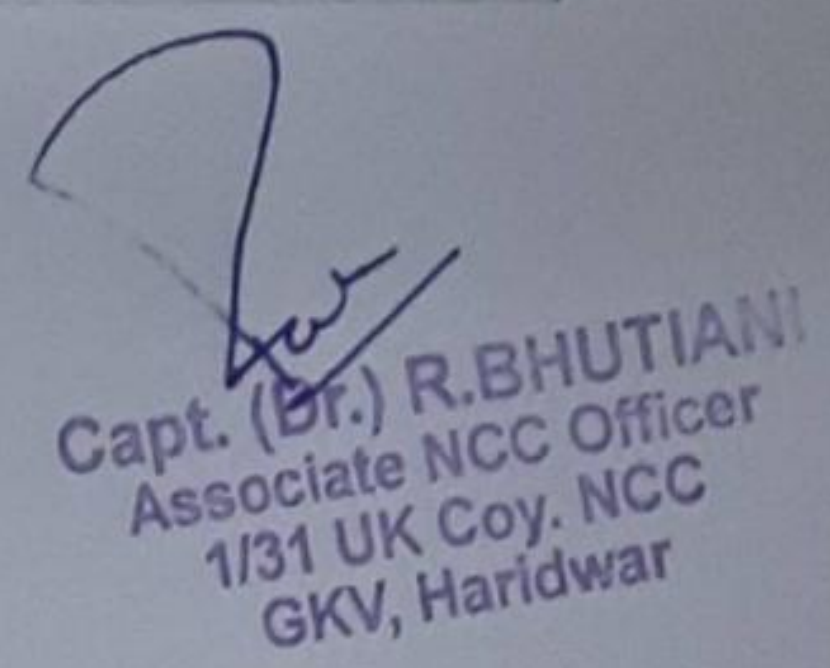 Capt. (Dr.) R.BHUTIANI
Associate NCC Officer
1/31 UK Coy. NCC
GKV, Haridwar